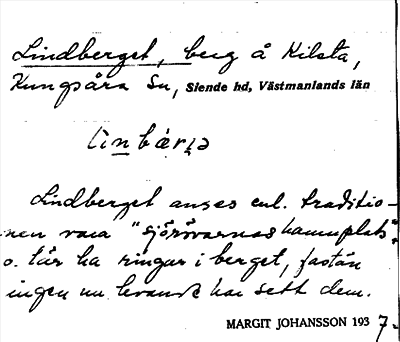 Lindberget, berg å Kilsta,
Kungsåra Sn, Siende hd, Västmanlands län
Lindberget anses enl. traditio-
nen vara "sjörövarnas hamnplats",
o. lär ha ringar i berget, fastän
ingen nu levande har sett dem.
MARGIT JOHANSSON 1937.